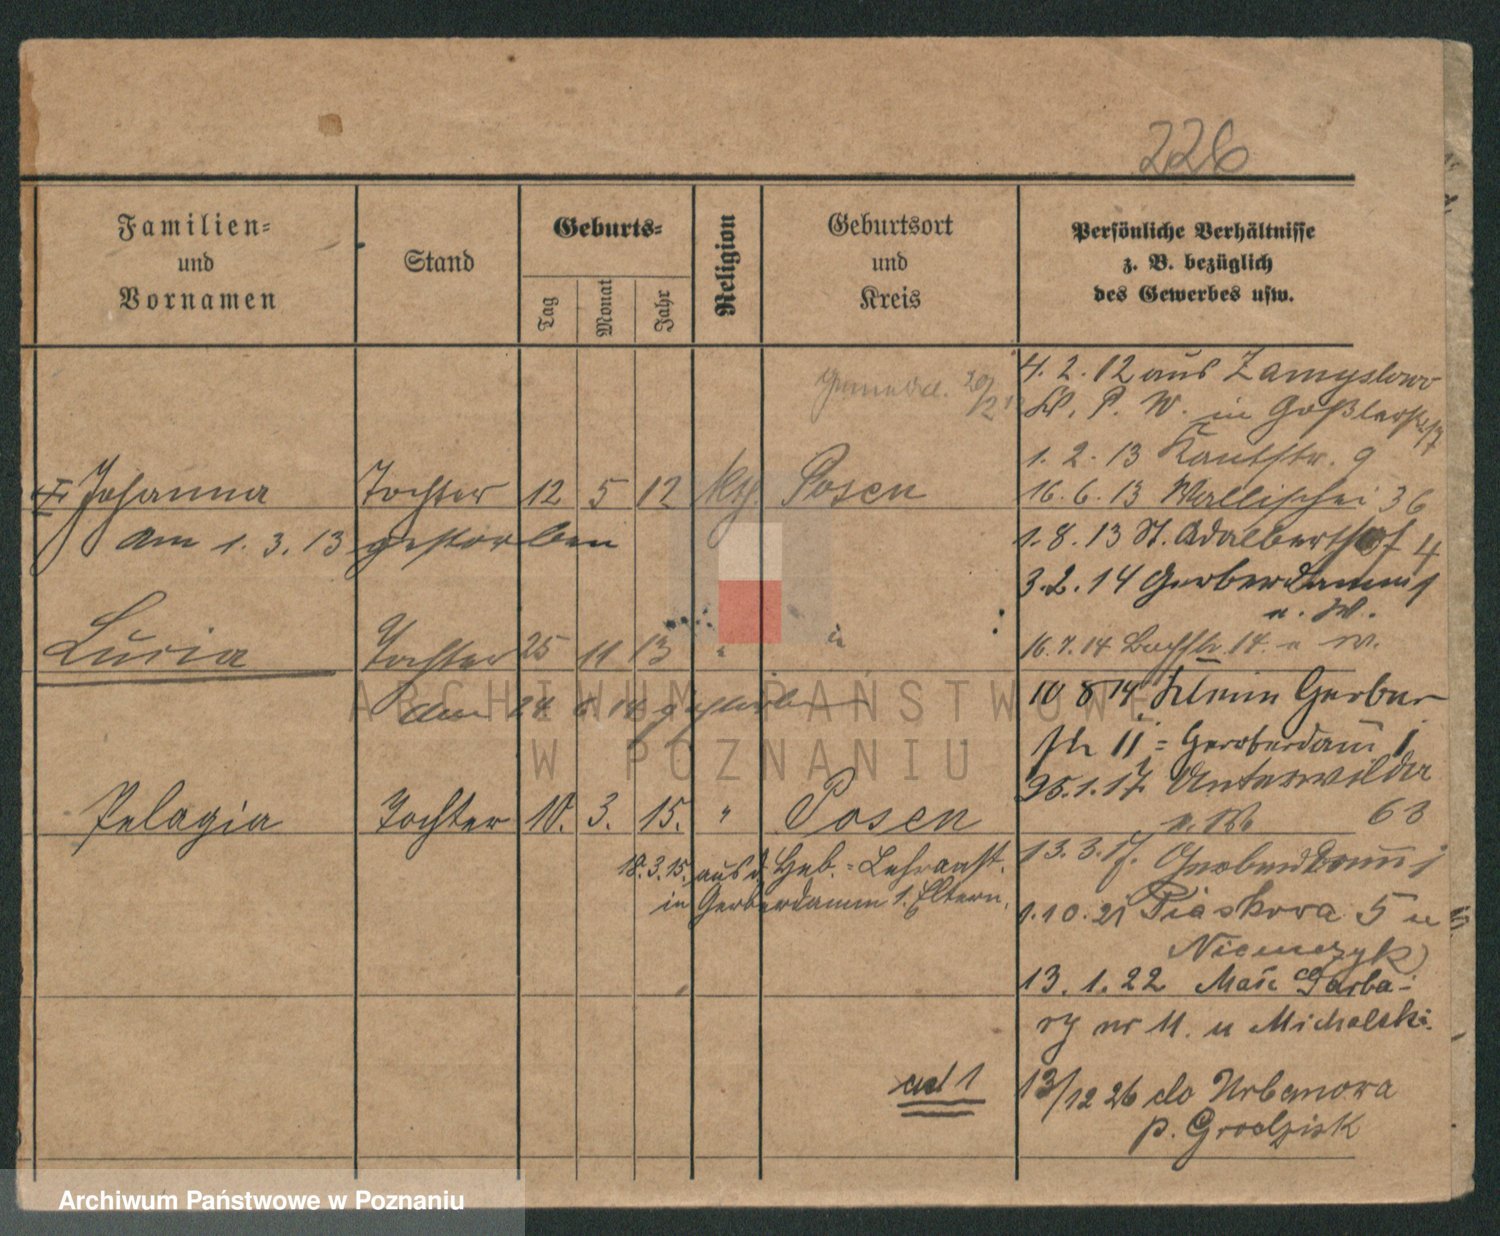 226
Familien-
und
Vornamen
Stand
Geburts-
Tag
Monat
Jahr
Religion
Geburtsort
und
Kreis
Persönliche Verhältnisse
z. B. bezüglich
des Gewerbes usw.
4. 2. 12 aus Zamyslowo
b. P. W. in Goßlerstr. 17
1. 2. 13 Kantstr. 9
Johanna Tochter 12 5 12 kt. Posen
16. 6. 13 Wallischei 36
am 1. 3. 13 gestorben
1. 8. 13 St. Adalberthof 4
3. 2. 14 Gerberdamm 1
b. W.
Luzia Tochter 25 11 13 " "
16. 7. 14 14. b. W.
am 24 6 14 gestorben
10 8 14 Klein Gerber
str 11 = Gerberdam 1
25. 1. 17. Unterwilda
b. W. 63
Pelagia Tochter 10. 3. 15. " Posen
18. 3. 15. aus d. Heb.-Lehranst.
in Gerberdamm 1. Eltern.
13. 3. 17. Gerberdamm 1
1. 10. 21 Piaskowa 5 u
Niemczyk
13. 1. 22 Małe Garba-
ry nr 11. u Michalski.
ad 1
13/12 26 do Urbanowa
p. Grodzisk
ARCHIWUM PAŃSTWOWE
W POZNANIU
Archiwum Państwowe w Poznaniu